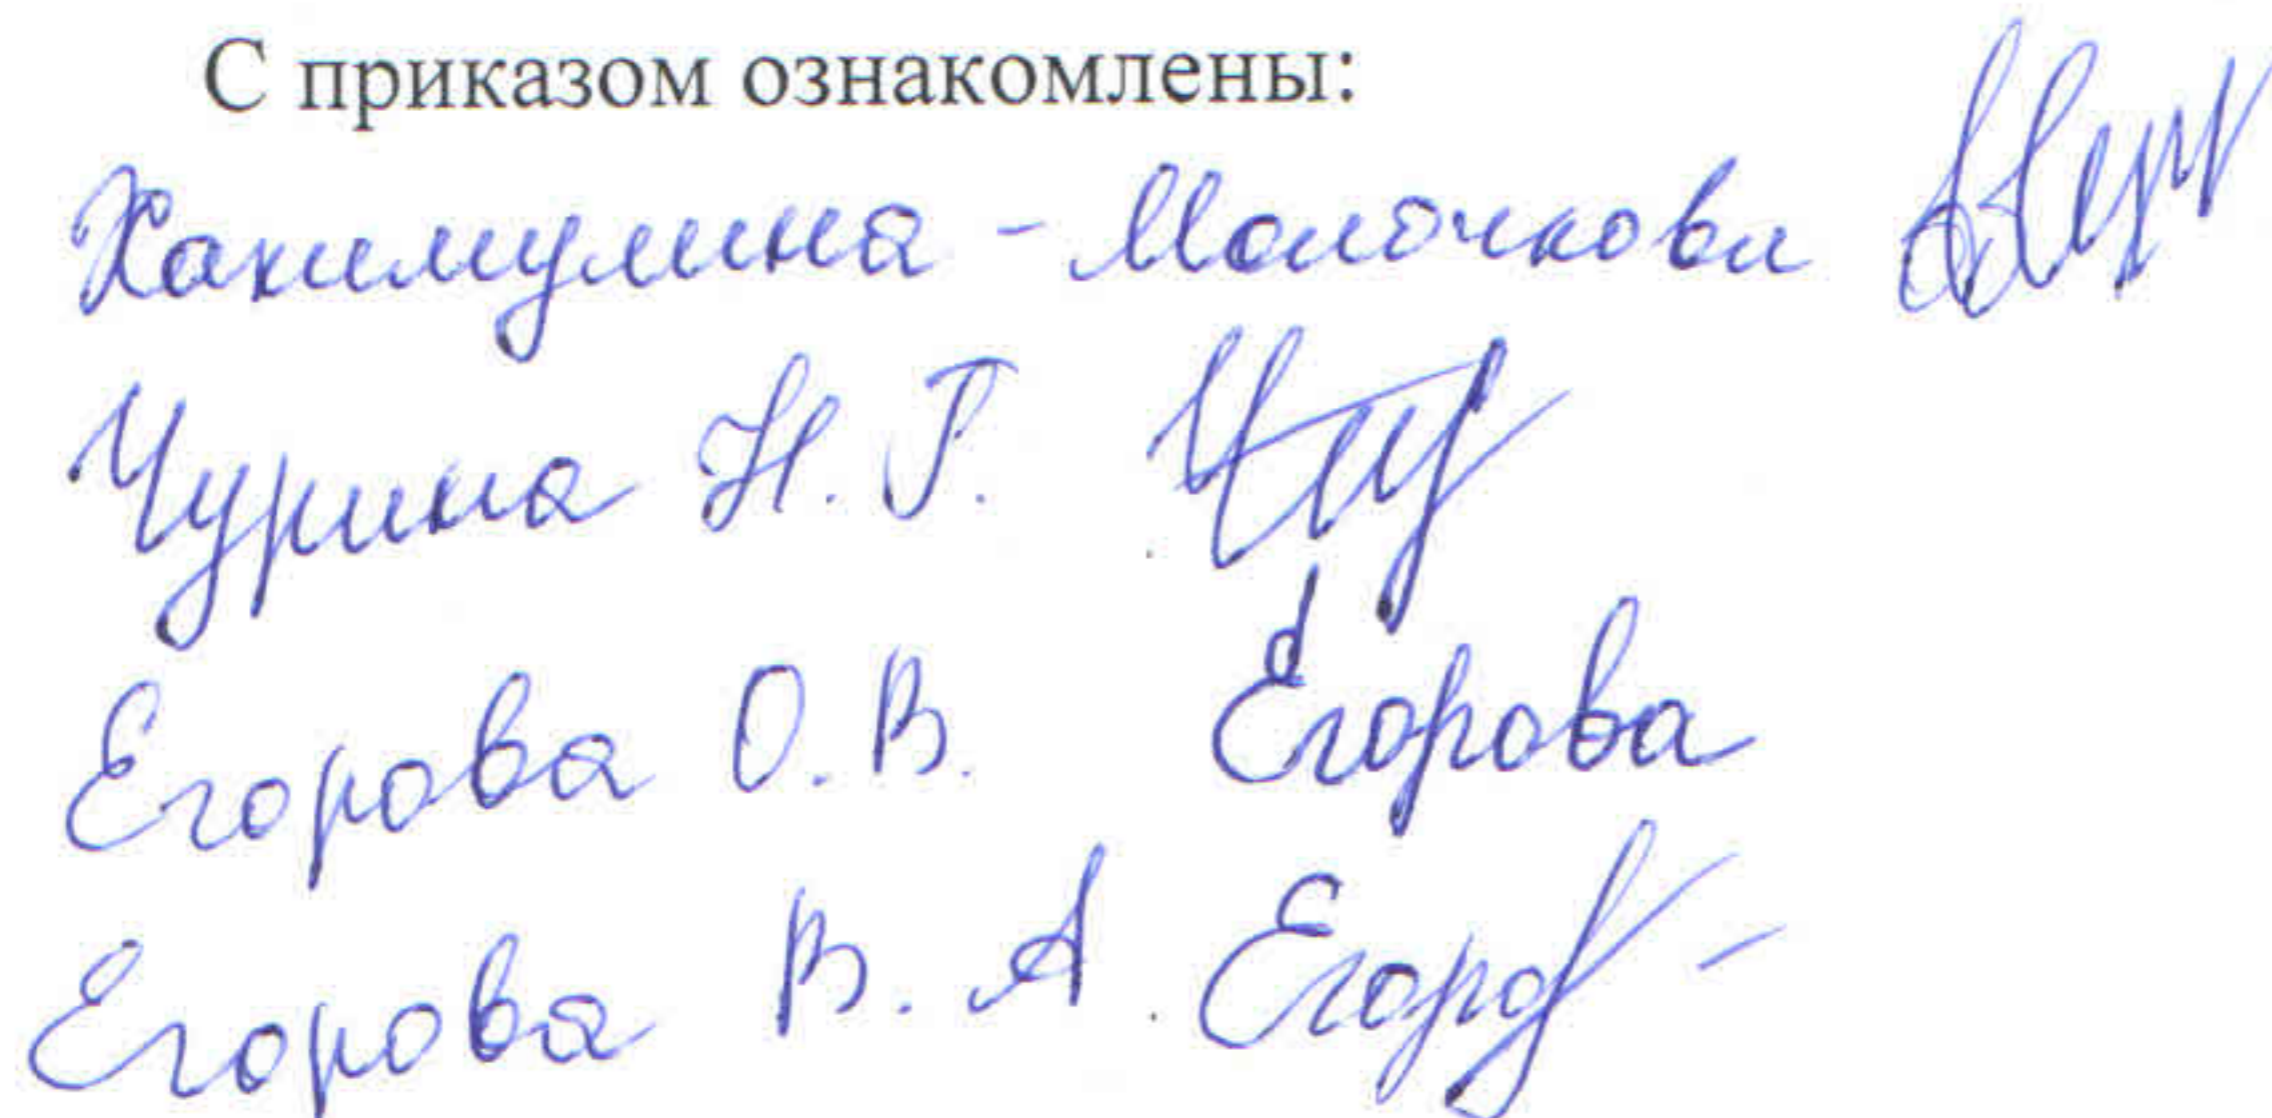 С приказом ознакомлены:
Хакимулина - Молочкова
Чурина Н. Г.
Егорова О. В. Егорова
Егорова В. А. Егоров